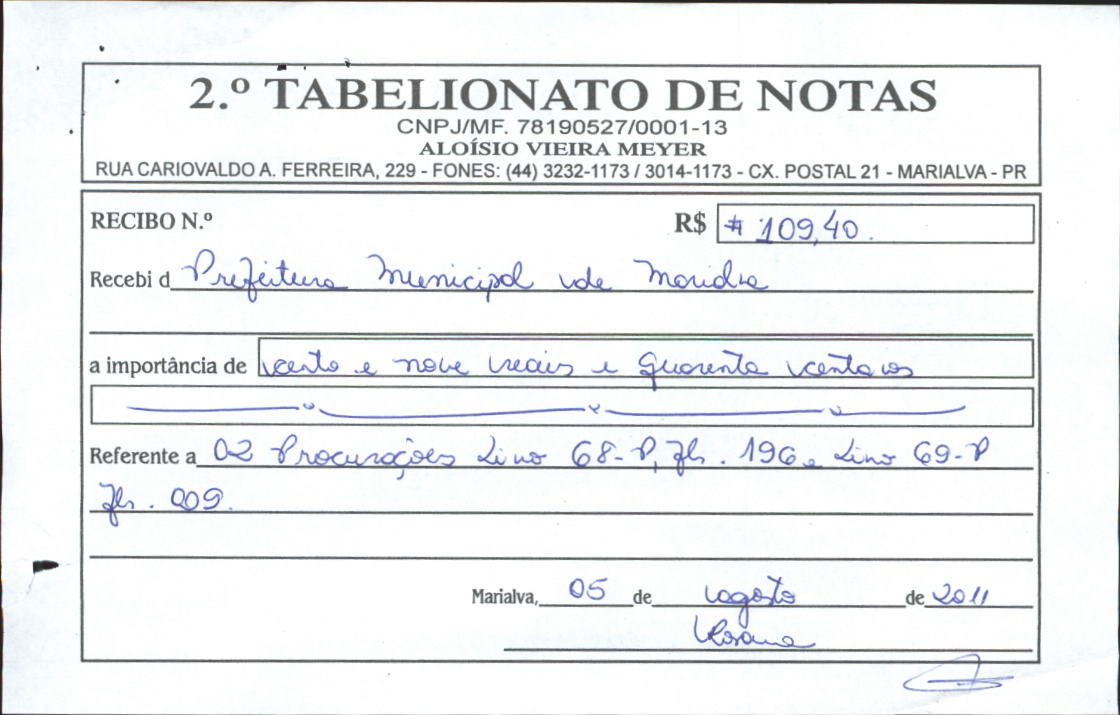 2.º TABELIONATO DE NOTAS
CNPJ/MF. 78190527/0001-13
ALOÍSIO VIEIRA MEYER
RUA CARIOVALDO A. FERREIRA, 229 - FONES: (44) 3232-1173 / 3014-1173 - CX. POSTAL 21 - MARIALVA - PR
RECIBO N.º R$ # 109,40.
Recebi d Prefeitura Municipal de Marialva
a importância de cento e nove reais e quarenta centavos
Referente a 02 Procurações Livro 68-P, fls. 196 e Livro 69-P
fls. 009.
Marialva, 05 de agosto de 2011
Rosana